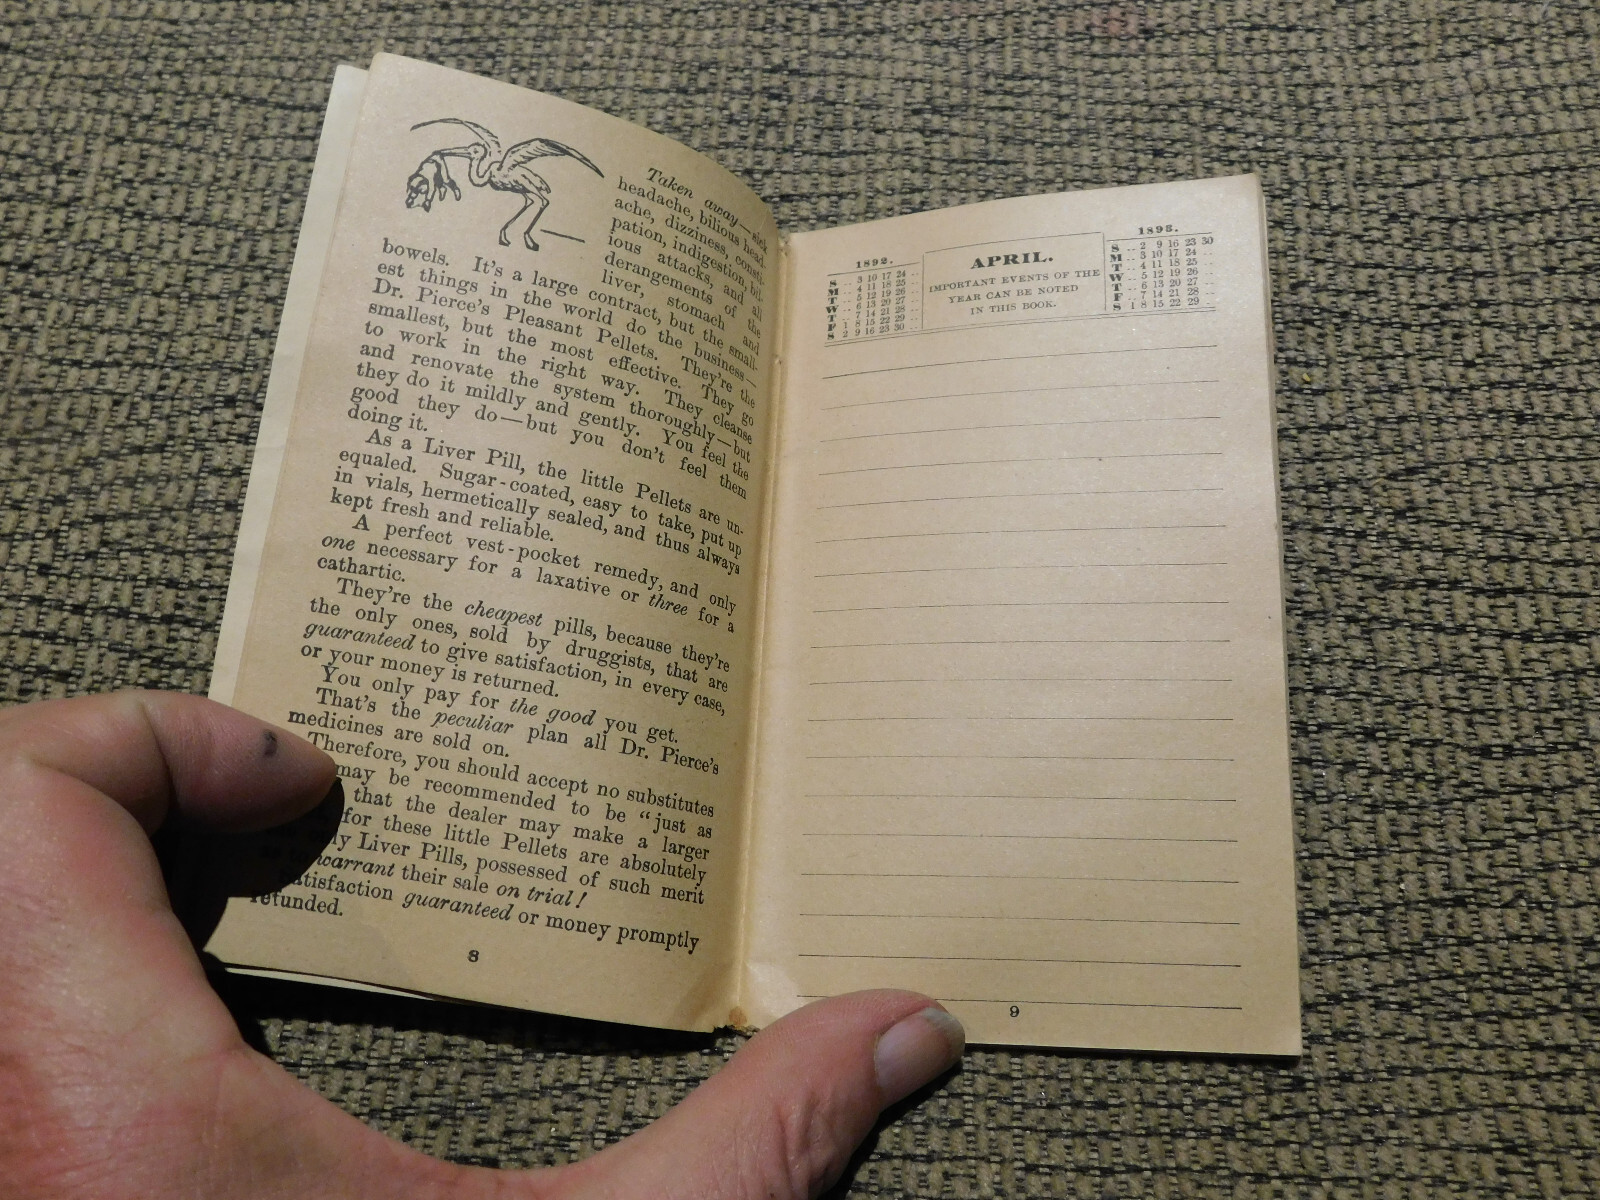 Taken away—sick
headache, bilious head-
ache, dizziness, consti-
pation, indigestion, bil-
ious attacks, and all
derangements of the
liver, stomach and
bowels. It's a large contract, but the small-
est things in the world do the business—
Dr. Pierce's Pleasant Pellets. They're the
smallest, but the most effective. They go
to work in the right way. They cleanse
and renovate the system thoroughly—but
they do it mildly and gently. You feel the
good they do—but you don't feel them
doing it.
As a Liver Pill, the little Pellets are un-
equaled. Sugar-coated, easy to take, put up
in vials, hermetically sealed, and thus always
kept fresh and reliable.
A perfect vest-pocket remedy, and only
one necessary for a laxative or three for a
cathartic.
They're the cheapest pills, because they're
the only ones, sold by druggists, that are
guaranteed to give satisfaction, in every case,
or your money is returned.
You only pay for the good you get.
That's the peculiar plan all Dr. Pierce's
medicines are sold on.
Therefore, you should accept no substitutes
may be recommended to be "just as
that the dealer may make a larger
for these little Pellets are absolutely
ly Liver Pills, possessed of such merit
warrant their sale on trial!
atisfaction guaranteed or money promptly
refunded.
8
1892.
S .. 3 10 17 24 ..
M .. 4 11 18 25 ..
T .. 5 12 19 26 ..
W .. 6 13 20 27 ..
T .. 7 14 21 28 ..
F 1 8 15 22 29 ..
S 2 9 16 23 30 ..
APRIL.
IMPORTANT EVENTS OF THE
YEAR CAN BE NOTED
IN THIS BOOK.
1893.
S .. 2 9 16 23 30
M .. 3 10 17 24 ..
T .. 4 11 18 25 ..
W .. 5 12 19 26 ..
T .. 6 13 20 27 ..
F .. 7 14 21 28 ..
S 1 8 15 22 29 ..
9